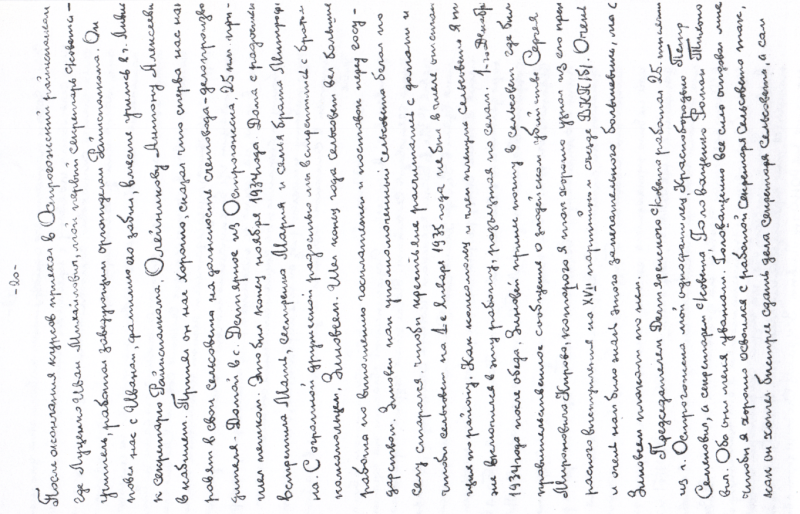 -20-
После окончания курсов приехал в Острогожский райисполком
где Луценко Иван Михайлович, мой первый секретарь Ковенс-
учитель, работал заведующим орготделом Райисполкома. Он
повел нас с Иваном, фамилию его забыл, вместе учились в г.
к секретарю Райисполкома, Олейникову Антону Алексееви
в кабинет. Принял он нас хорошо, сказал что сперва нас на
равят в свои сельсоветы на должности счетовода-делопроизво
дителя. Домой в с. Дехтярное из Острогожска, 25 км. при-
шел пешком. Это был конец ноября 1934 года. Дома с радостью
встретила Мама, сестренка Мария и семья брата Митрофа
на. С огромной дружеской радостью мы встретились с братом
комсомольцем, Зиновеем. Шел конец года сельсовет вел большие
работы по выполнению госпоставок и поставок перед госу-
дарством. Зиновей как уполномоченный сельсовета бегал по
селу старался, чтобы крестьяне рассчитались с долгами и
чтобы сельсовет на 1-е Января 1935 года не был в числе отстаю
щих по району. Как комсомолец и член пленума Сельсовета я т
же включился в эту работу, разъезжая по селам. 1-го Декабр
1934 года после обеда, Зиновей принес почту в сельсовет где был
правительственное сообщение о злодейском убийстве Сергея
Мироновича Кирова, которого я так хорошо узнал из его прек
расного выступления на XVII партийном съезде ВКП(б). Очень
и очень нам было жаль этого замечательного большевика, мы с
Зиновеем плакали по нем.
Председателем Дехтяренского Ковенс работал 25-тысяч
из г. Острогожска мой однофамилец Краснобородько Петр
Семенович, а секретарем Ковенс, Головащенко Роман Тимофе
вич. Оба они меня уважали. Головащенко все сило отдавал мне
чтобы я хорошо освоился с работой Секретаря Сельсовета так,
как он хотел быстрее сдать дела Секретаря Сельсовета, а сам